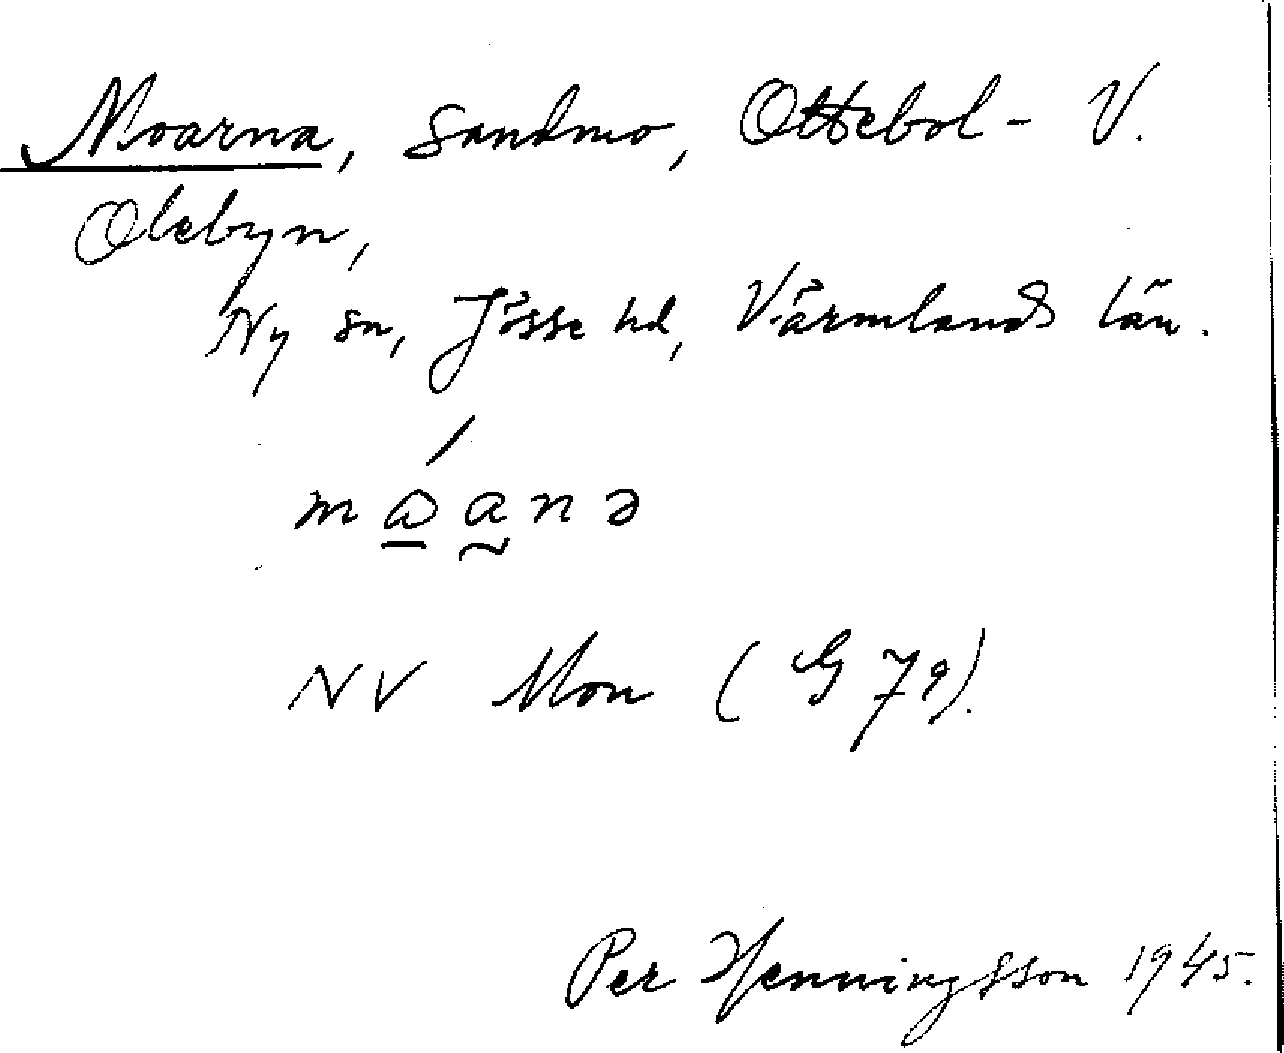 Moarna, Sandmo, Ottebol - V.
Olebyn,
Ny sn, Jösse hd, Värmlands län.
må̱a̰nə
NV Mon (G 79).
Per Henningsson 1945.